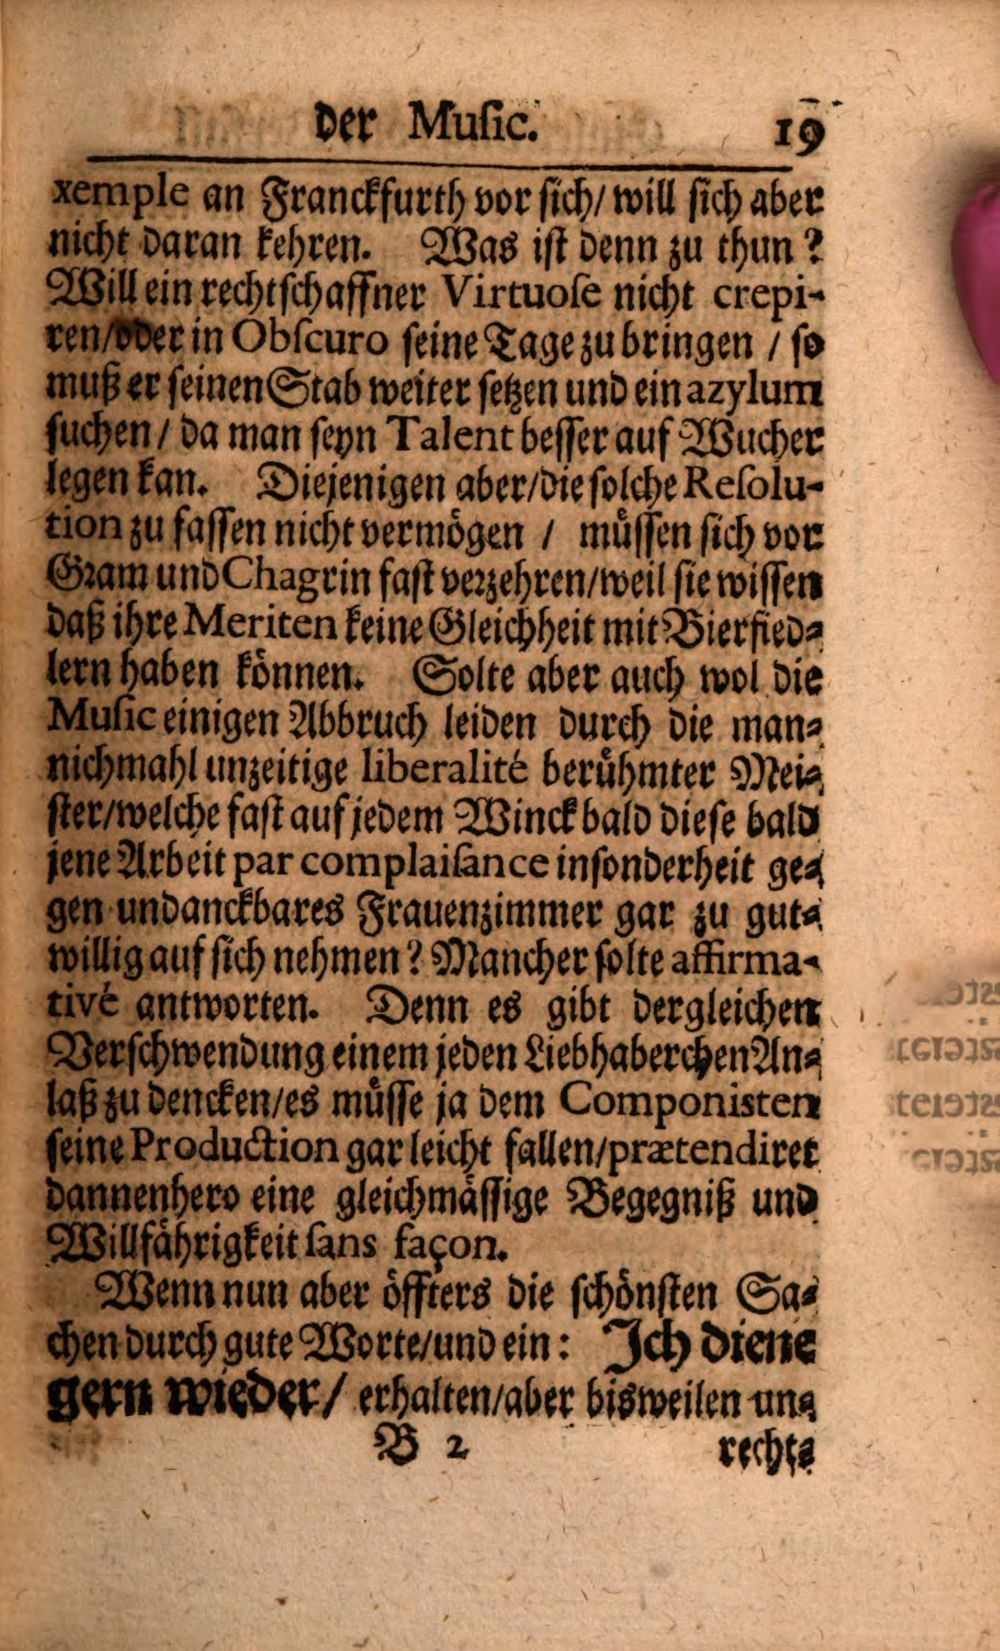 der Muſic. 19
xemple an Franckfurth vor ſich/ will ſich aber
nicht daran kehren. Was iſt denn zu thun?
Will ein rechtſchaffner Virtuoſe nicht crepi-
ren/oder in Obſcuro ſeine Tage zu bringen / ſo
muß er ſeinen Stab weiter ſetzen und ein azylum
ſuchen / da man ſeyn Talent beſſer auf Wucher
legen kan. Diejenigen aber/die ſolche Reſolu-
tion zu faſſen nicht vermögen / müſſen ſich vor
Gram und Chagrin faſt verzehren/weil ſie wiſſen
daß ihre Meriten keine Gleichheit mit Bierfied-
lern haben können. Solte aber auch wol die
Muſic einigen Abbruch leiden durch die man-
nichmahl unzeitige liberalité berühmter Mei-
ſter/welche faſt auf jedem Winck bald dieſe bald
jene Arbeit par complaiſance inſonderheit ge-
gen undanckbares Frauenzimmer gar zu gut-
willig auf ſich nehmen? Mancher ſolte affirma-
tivé antworten. Denn es gibt dergleichen
Verſchwendung einem jeden Liebhaberchen An-
laß zu dencken/es müſſe ja dem Componiſten
ſeine Production gar leicht fallen/prætendiret
dannenhero eine gleichmäſſige Begegniß und
Willfährigkeit ſans façon.
Wenn nun aber öffters die ſchönſten Sa-
chen durch gute Worte/und ein: Ich diene
gern wieder/ erhalten/aber bisweilen un-
B 2 recht-